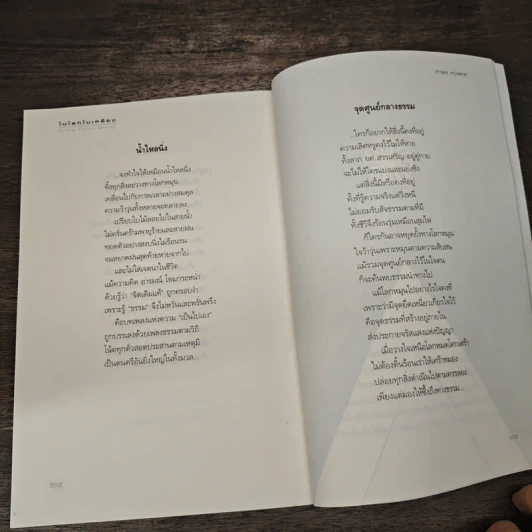 ในโลกใบเหลือบ
น้ำไหลนิ่ง
...จงทำใจให้เหมือนน้ำไหลนิ่ง
ทิ้งทุกสิ่งละวางทางโลกหมุน
เคลื่อนไปกับกาลเวลาอย่างสมดุล
ความว้าวุ่นทั้งหลายจะคลายลง
เปรียบใบไม้ลอยไปในสายน้ำ
ไม่ครั่นคร้ามพายุร้ายและสายฝน
ทอดตัวอย่างสงบนิ่งไม่ร้อนรน
จนหยาดฝนสุดท้ายหายจากไป
และไม่ใส่เจตนาในชีวิต
แม้ความคิด อารมณ์ โหมกระหน่ำ
ด้วยรู้ว่า "จิตเดิมแท้" ถูกครอบงำ
เพราะรู้ "ธรรม" จึงไม่หวั่นและพรั่นพรึง
คือบทเพลงแห่งความ "เป็นไปเอง"
ถูกบรรเลงด้วยเพลงธรรมตามวิถี
โน้ตทุกตัวสอดประสานตามเหตุมี
เป็นดนตรีอันยิ่งใหญ่ในทั้งมวล...
312
จุดศูนย์กลางธรรม
...ใครก็อยากให้สิ่งนี้คงที่อยู่
ความเลิศหรูคงไว้ไม่ให้หาย
ทั้งลาภ ยศ สรรเสริญ อยู่คู่กาย
จะไม่ให้ใครแบ่งและแย่งชิง
แต่สิ่งนี้มีหรือคงที่อยู่
ทั้งที่รู้ความจริงแต่วิ่งหนี
ไม่ยอมรับสัจธรรมตามที่มี
ทั้งชีวีจึงร้อนรุ่มเหมือนสุมไฟ
ก็ใครกันอาจหยุดยั้งทางโลกหมุน
ใจว้าวุ่นเพราะหมุนตามความสับสน
แม้รวมจุดศูนย์กลางไว้ในใจตน
ก็จะค้นพบธรรมนำทางไป
แม้โลกหมุนไปอย่างไรใจคงที่
เพราะว่ามีจุดยึดเหนี่ยวเสี้ยวใจไว้
คือจุดธรรมที่สร้างอยู่ภายใน
ส่งประกายจรัสแสงแห่งปัญญา
เมื่อวางใจเหนือโลกหมดโศกเศร้า
ไม่ต้องดิ้นร้อนเร่าให้เศร้าหมอง
ปล่อยทุกสิ่งดำเนินไปตามครรลอง
เพียงแต่มองให้ซึ้งถึงทางธรรม...
313